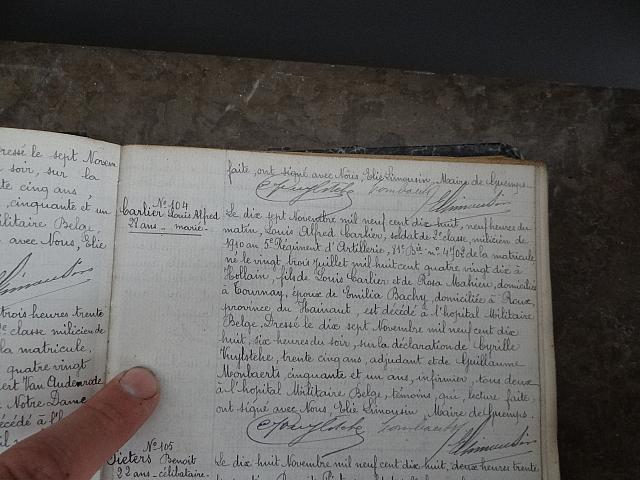 ressé le sept Novem
soir, sur la
te cinq ans,
, cinquante et un
ilitaire Belge,
avec Nous, Elie
trois heures trente
e classe milicien de
la matricule,
quatre vingt
bert Van Audenrode
. Notre Dame
écédé à l'h
faite, ont signé avec Nous, Elie Limousin, Maire de Guemps.
N° 104
Carlier Louis Alfred
27 ans - marié -
Le dix sept Novembre mil neuf cent dix huit, neuf heures du
matin, Louis Alfred Carlier, soldat de 2e classe, milicien de
1910 au 5e Régiment d'Artillerie, 81e Bie n° 4702 de la matricule
né le vingt trois juillet mil huit cent quatre vingt dix à
Hollain, fils de Louis Carlier et de Rosa Mahieu, domiciliés
à Tournay, époux de Emilia Bachy, domiciliée à Roux,
province du Hainaut, est décédé à l'hopital Militaire
Belge. Dressé le dix sept Novembre mil neuf cent dix
huit, six heures du soir, sur la déclaration de Cyrille
Vuylsteke, trente cinq ans, adjudant et de Guillaume
Mombaerts cinquante et un ans, infirmier, tous deux
à l'hopital Militaire Belge, témoins, qui, lecture faite,
ont signé avec Nous, Elie Limousin, Maire de Guemps.
N° 105
Pieters Benoit
22 ans - célibataire -
Le dix huit Novembre mil neuf cent dix huit, deux heures trente